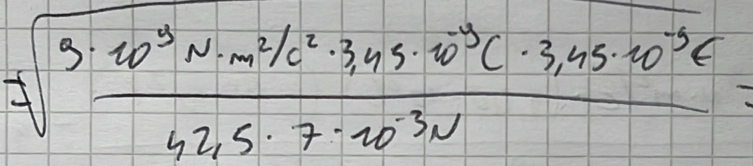 = √ 9 · 10⁹ N · m²/C² · 3,45 · 10⁻⁹ C · 3,45 · 10⁻⁹ C =
42,5 · 7 · 10⁻³ N